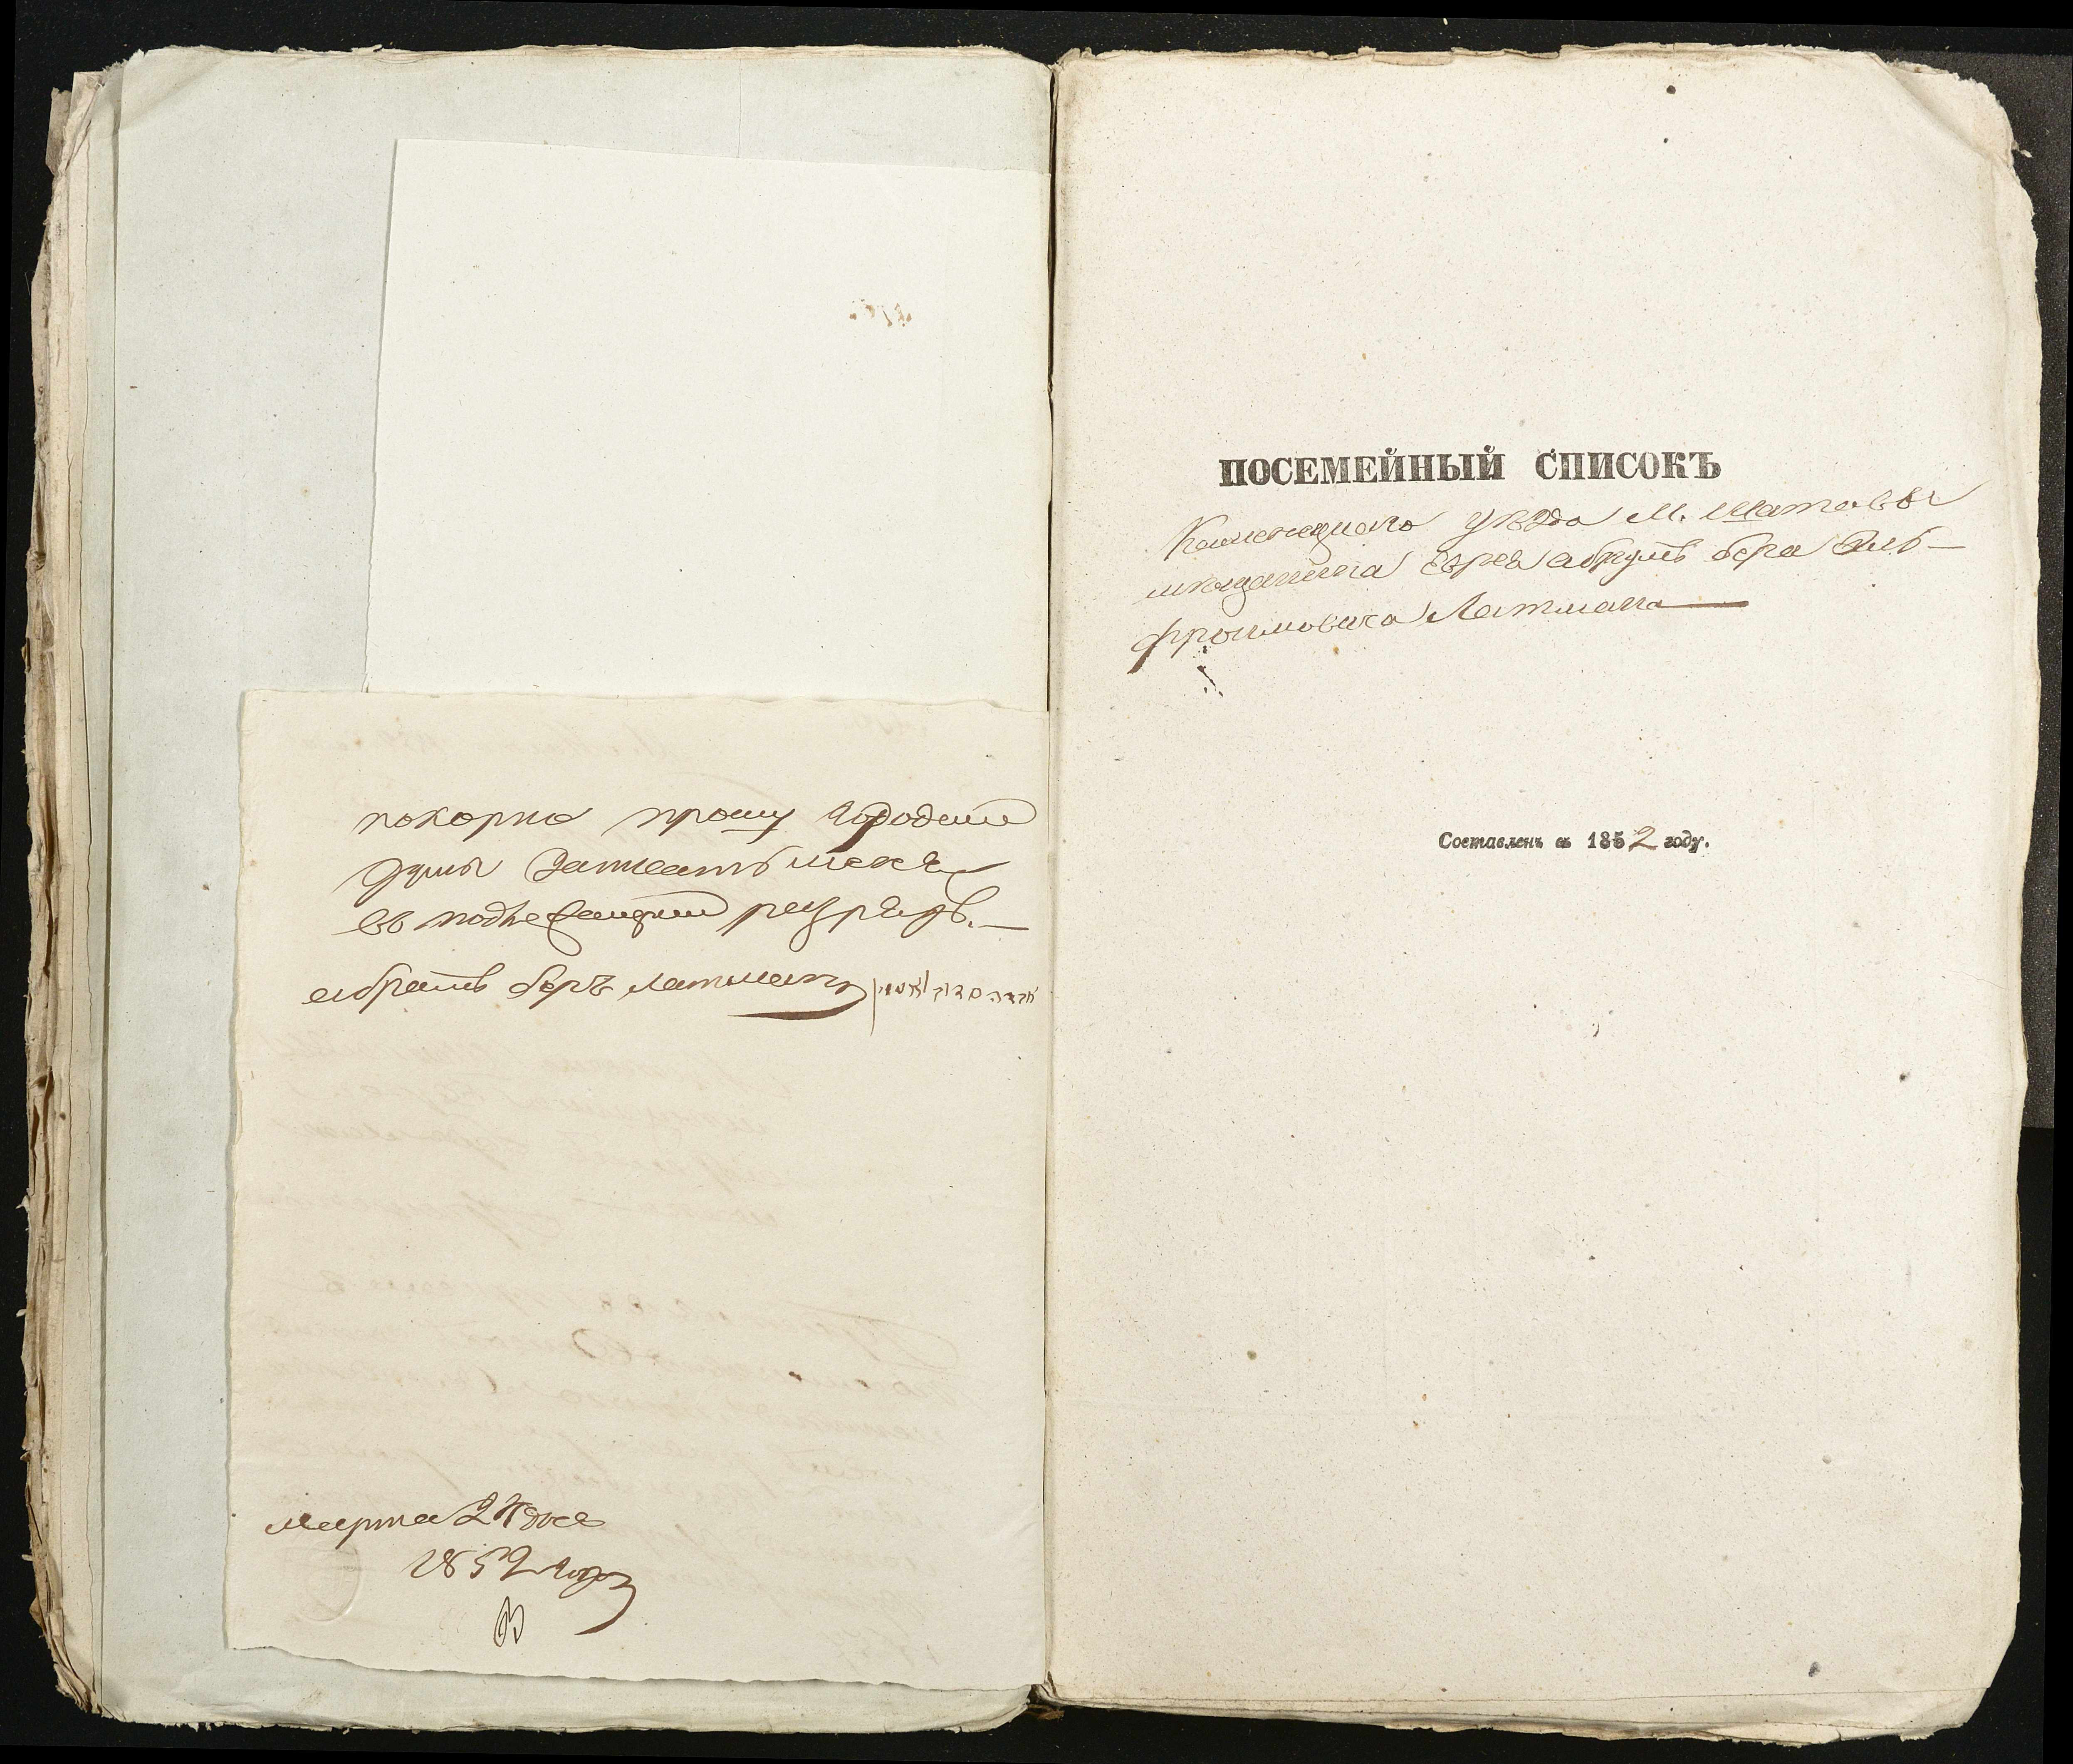 покорно прошу Городеной
Думы Записать меня
во подне разрядъ.—
абрамъ беръ латманъ אברהם בער לאטמאן
марта 24 дня
1852 года
ПОСЕМЕЙНЫЙ СПИСОКЪ
Каменецкаго уѣзда М. Шатавы
мѣщанина Еврея абрумъ бера Эль-
фроимовича Латмана
Составленъ въ 1852 году.